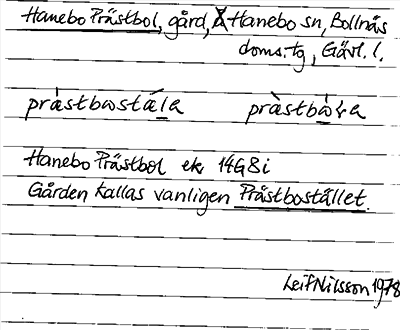 Hanebo Prästbol, gård, Hanebo sn, Bollnäs
doms.tg, Gävl. l.
pràstbωstáḷa pràstbὼḷa
Hanebo Prästbol ek 14G8i
Gården kallas vanligen Prästbostället.
Leif Nilsson 1978